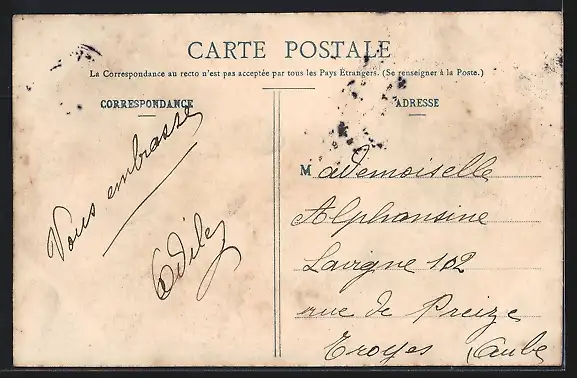 CARTE POSTALE
La Correspondance au recto n'est pas acceptée par tous les Pays Étrangers. (Se renseigner à la Poste.)
CORRESPONDANCE
Vous embrasse
Odile
ADRESSE
Mademoiselle
Alphonsine
Lavigne 102
rue de Preize
Troyes (Aube